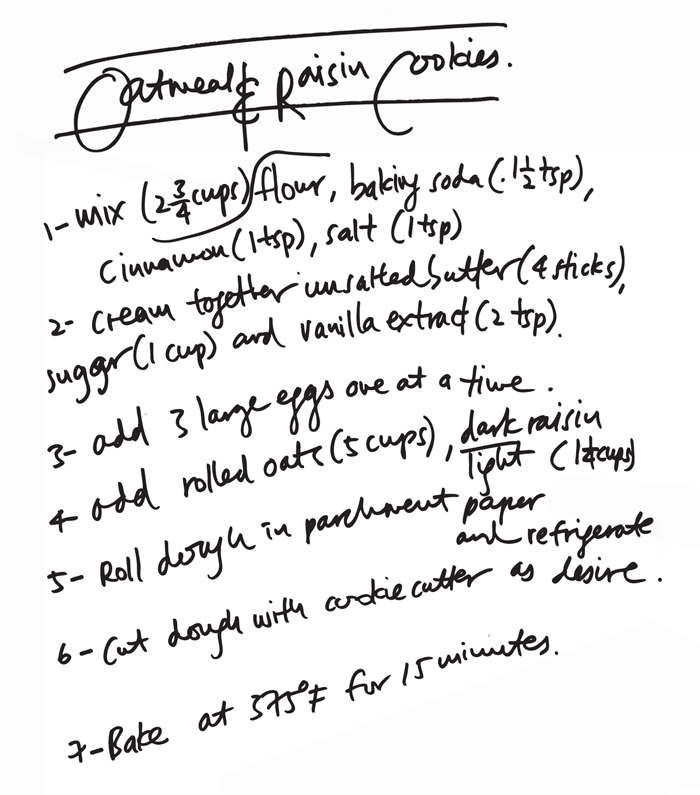 Oatmeal & Raisin Cookies.
1- mix (2 3/4 cups) flour, baking soda (1 1/2 tsp),
cinnamon (1 tsp), salt (1 tsp)
2- cream together unsalted butter (4 sticks),
suggar (1 cup) and vanilla extract (2 tsp).
3- add 3 large eggs one at a time.
4 add rolled oats (5 cups), dark raisin
light (1 1/4 cups)
5- Roll dough in parchment paper
and refrigerate
6- Cut dough with cookie cutter as desire.
7- Bake at 375°F for 15 minutes.